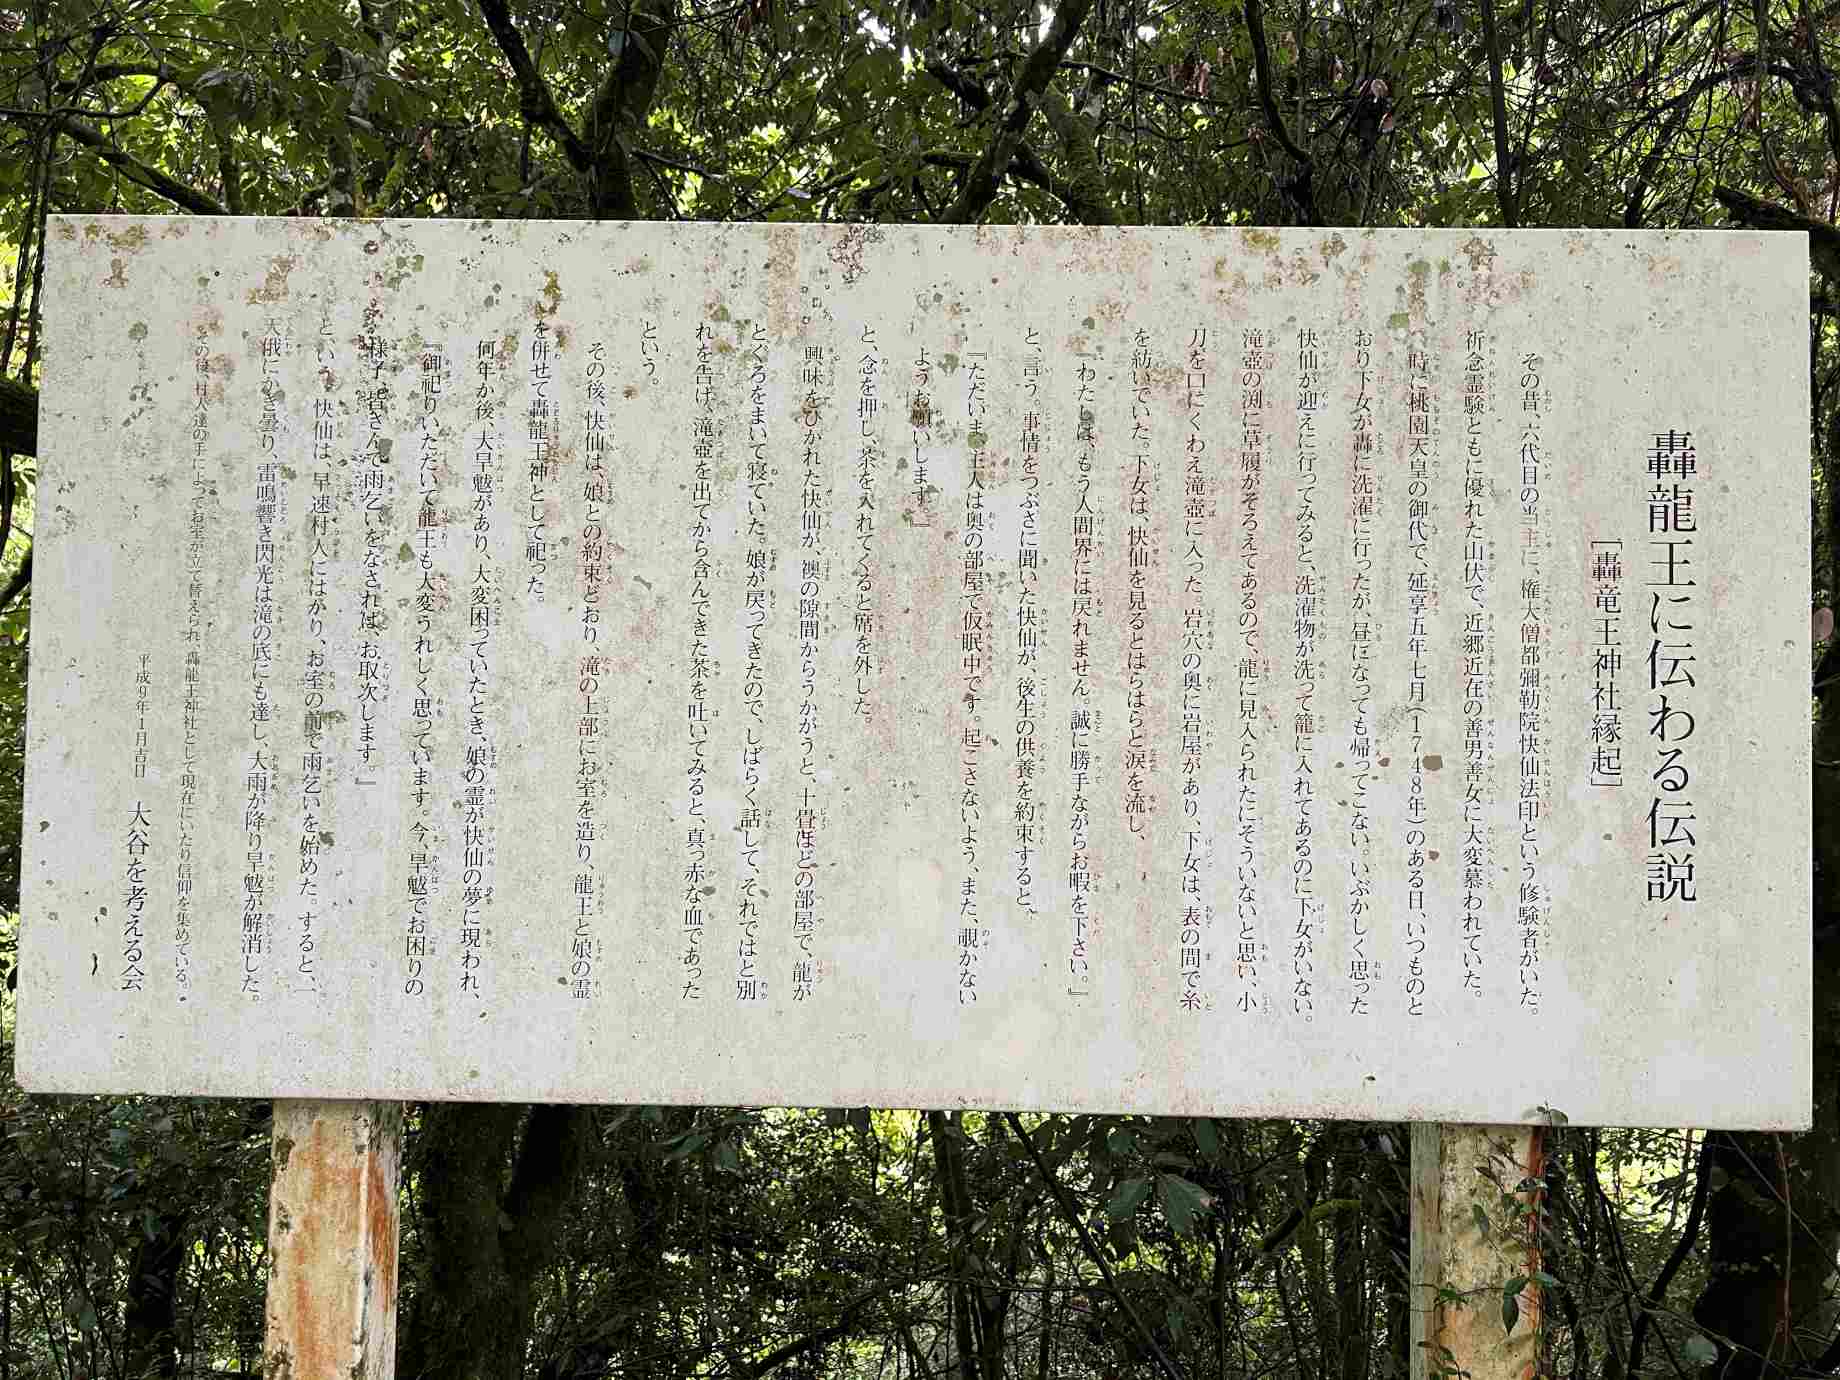 轟龍王に伝わる伝説
［轟竜王神社縁起］
その昔、六代目の当主に、権大僧都彌勒院快仙法印という修験者がいた。
祈念霊験ともに優れた山伏で、近郷近在の善男善女に大変慕われていた。
時に桃園天皇の御代で、延享五年七月（1748年）のある日、いつものと
おり下女が轟に洗濯に行ったが、昼になっても帰ってこない。いぶかしく思った
快仙が迎えに行ってみると、洗濯物が洗って籠に入れてあるのに下女がいない。
滝壺の渕に草履がそろえてあるので、龍に見入られたにそういないと思い、小
刀を口にくわえ滝壺に入った。岩穴の奥に岩屋があり、下女は、表の間で糸
を紡いでいた。下女は、快仙を見るとはらはらと涙を流し、
『わたしは、もう人間界には戻れません。誠に勝手ながらお暇を下さい。』
と、言う。事情をつぶさに聞いた快仙が、後生の供養を約束すると、
『ただいま、主人は奥の部屋で仮眠中です。起こさないよう、また、覗かない
ようお願いします。』
と、念を押し、茶を入れてくると席を外した。
興味をひかれた快仙が、襖の隙間からうかがうと、十畳ほどの部屋で、龍が
とぐろをまいて寝ていた。娘が戻ってきたので、しばらく話して、それではと別
れを告げ、滝壺を出てから含んできた茶を吐いてみると、真っ赤な血であった
という。
その後、快仙は、娘との約束どおり、滝の上部にお室を造り、龍王と娘の霊
を併せて轟龍王神として祀った。
何年か後、大旱魃があり、大変困っていたとき、娘の霊が快仙の夢に現われ、
『御祀りいただいて龍王も大変うれしく思っています。今、旱魃でお困りの
様子、皆さんで雨乞いをなされば、お取次します。』
と、いう。快仙は、早速村人にはかり、お室の前で雨乞いを始めた。すると、一
天俄にかき曇り、雷鳴響き閃光は滝の底にも達し、大雨が降り旱魃が解消した。
その後、村人達の手によってお室が立て替えられ、轟龍王神社として現在にいたり信仰を集めている。
平成9年1月吉日　大谷を考える会